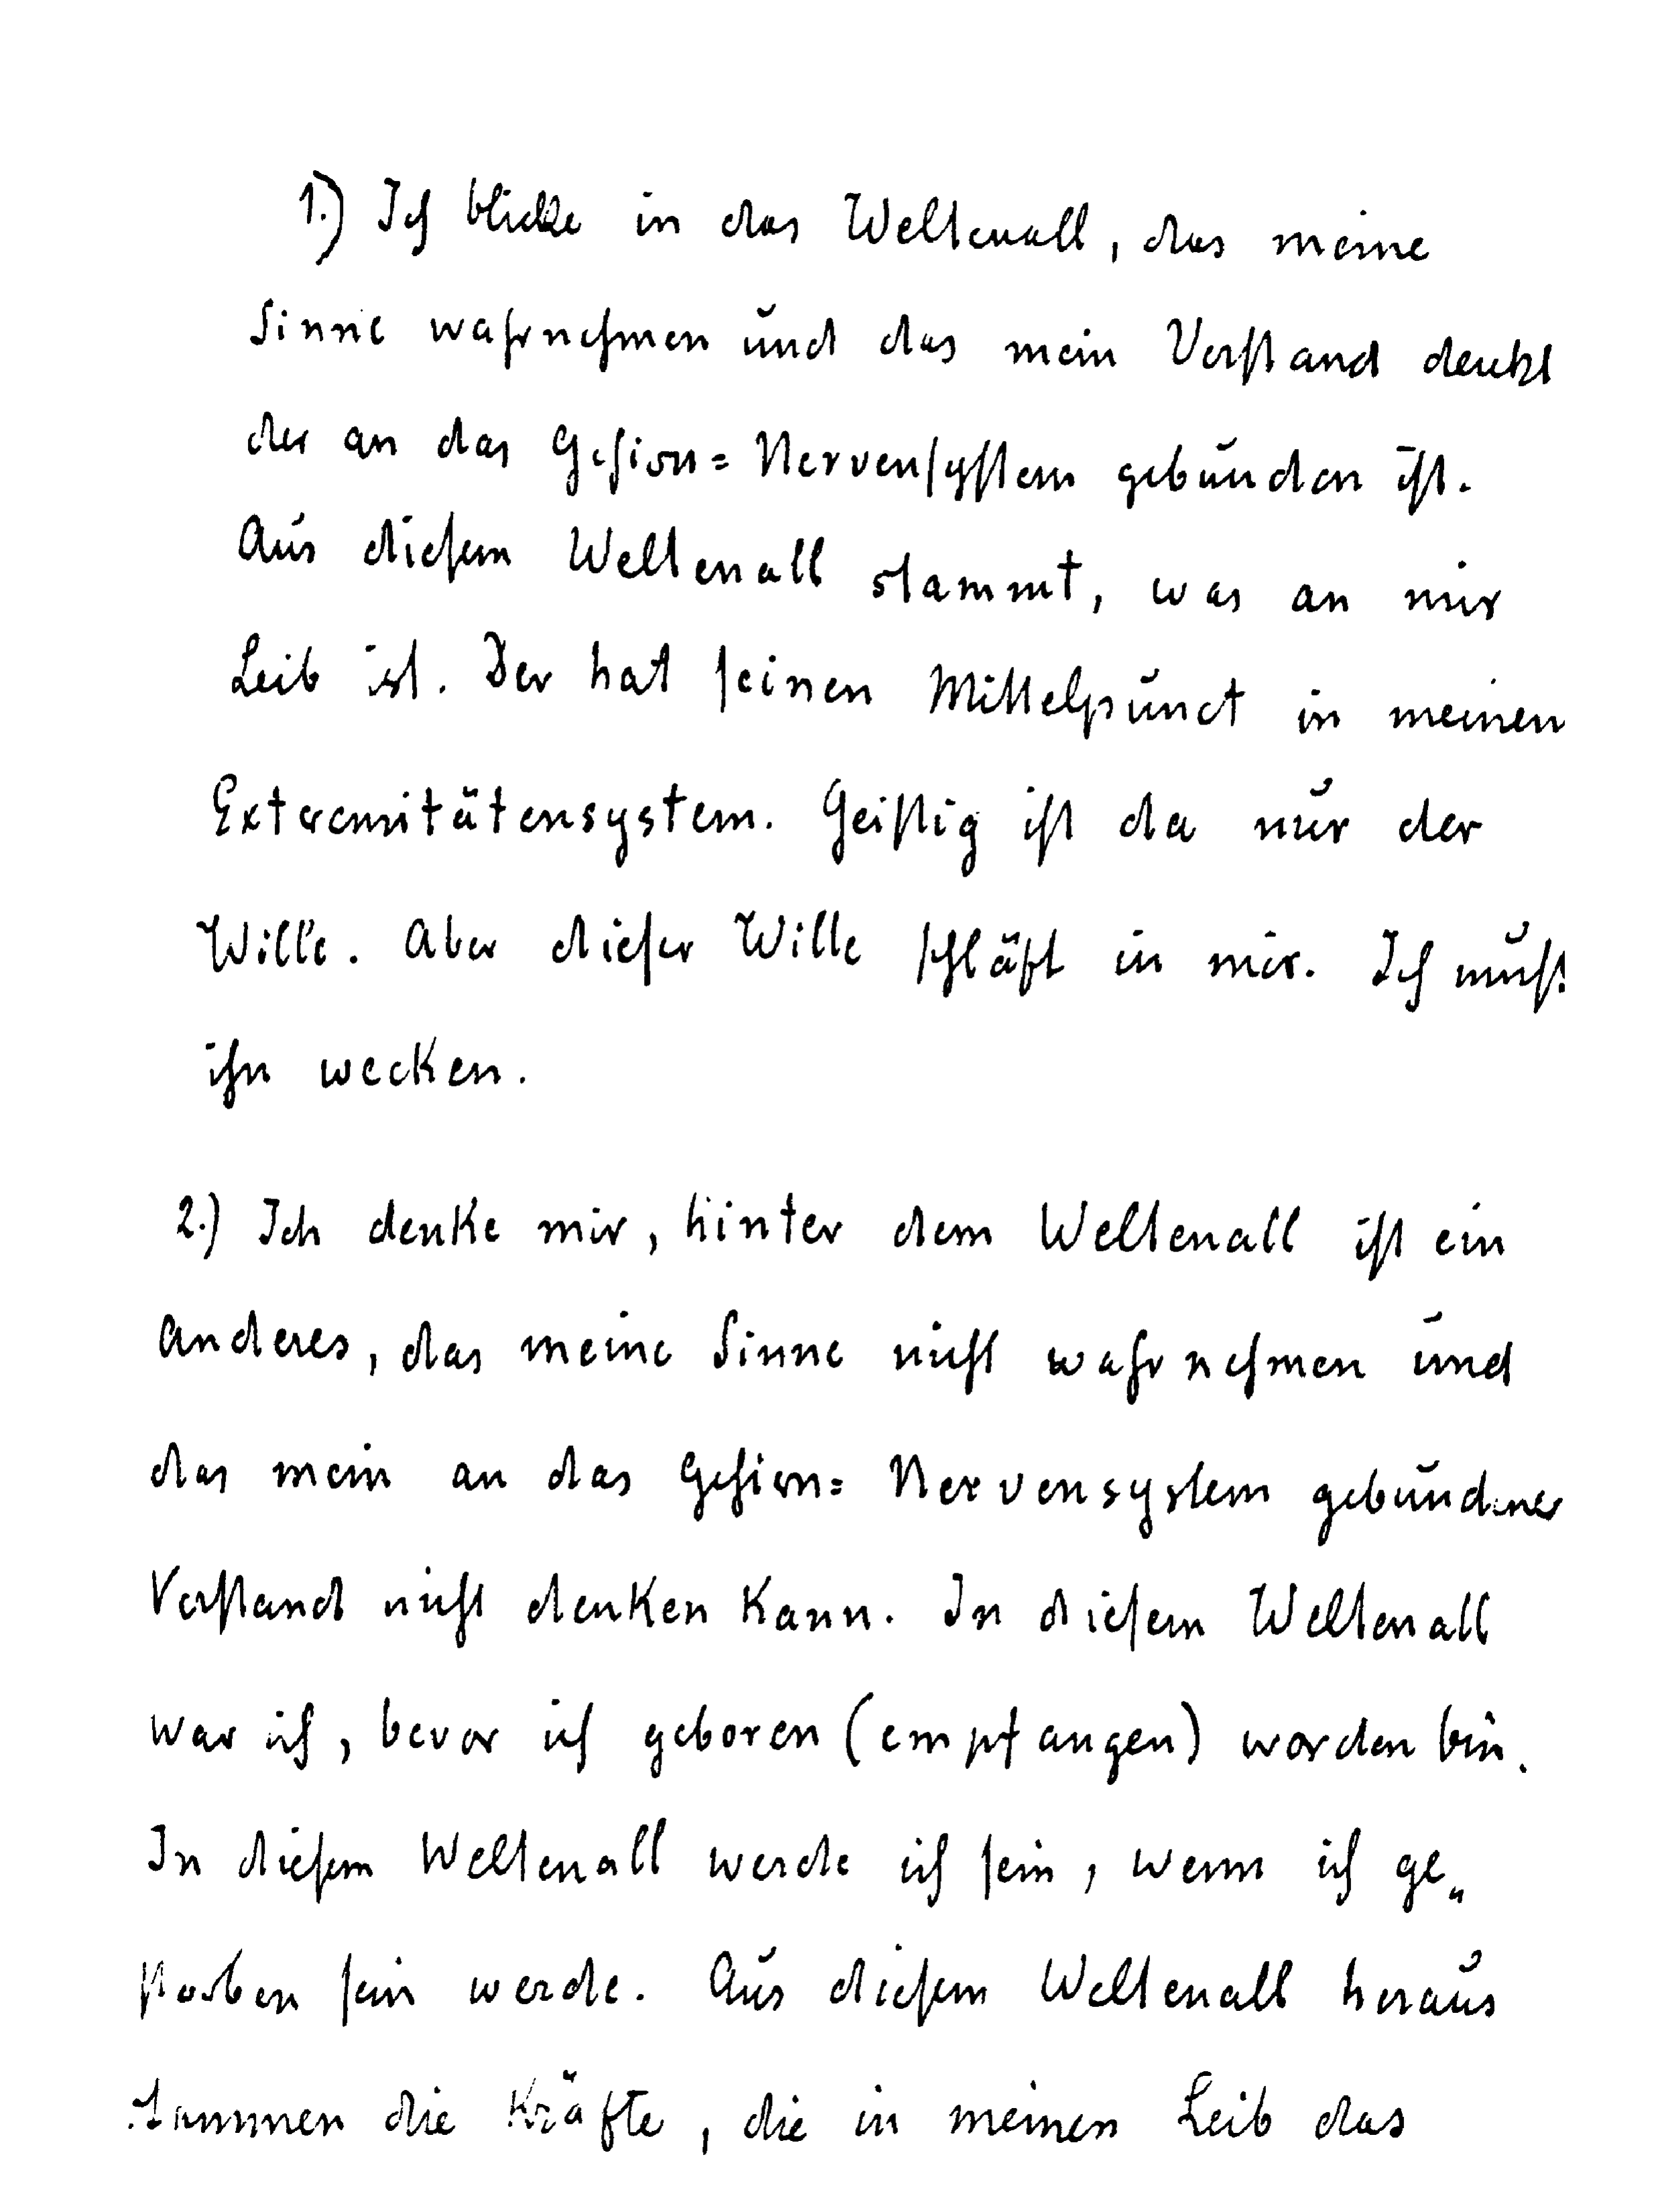 1.) Ich blicke in das Weltenall, das meine
Sinne wahrnehmen und das mein Verstand denkt
der an das Gehirn= Nervensystem gebunden ist.
Aus diesem Weltenall stammt, was an mir
Leib ist. Der hat seinen Mittelpunct in meinen
Extremitätensystem. Geistig ist da nur der
Wille. Aber dieser Wille schläft in mir. Ich muß
ihn wecken.
2.) Ich denke mir, hinter dem Weltenall ist ein
anderes, das meine Sinne nicht wahrnehmen und
das mein an das Gehirn= Nervensystem gebundener
Verstand nicht denken kann. In diesem Weltenall
war ich, bevor ich geboren (empfangen) worden bin.
In diesem Weltenall werde ich sein, wenn ich ge„
storben sein werde. Aus diesem Weltenall heraus
stammen die Kräfte, die in meinen Leib das